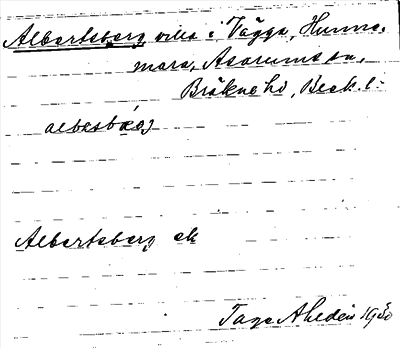 Albertsberg villa i Vägga, Hunne-
mara, Asarums sn,
Bräkne hd, Blek. l.
albæsbærj
Albertsberg ek
Tage Ahldén 1930